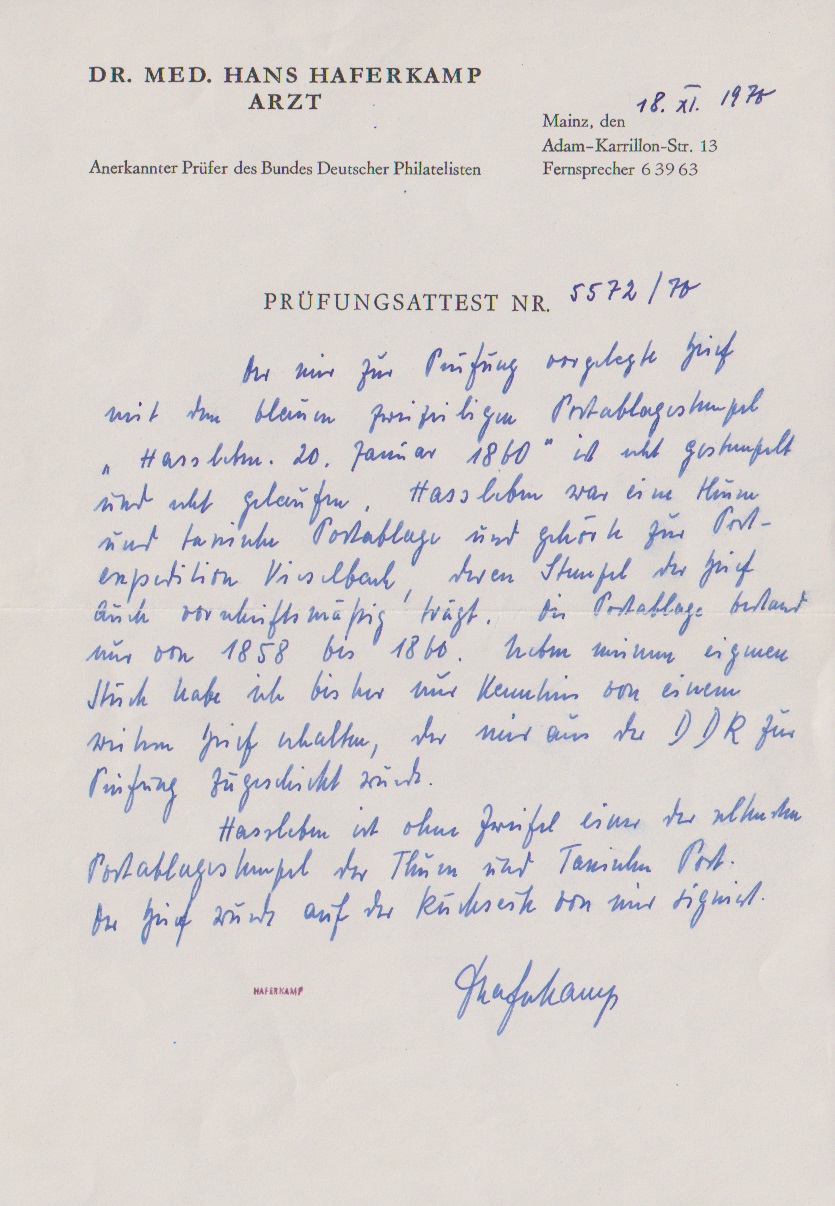 DR. MED. HANS HAFERKAMP
ARZT
18. XI. 1970
Mainz, den
Adam-Karrillon-Str. 13
Anerkannter Prüfer des Bundes Deutscher Philatelisten
Fernsprecher 6 39 63
PRÜFUNGSATTEST NR. 5572/70
Der mir zur Prüfung vorgelegte Brief
mit dem blauen zweizeiligen Postablagestempel
„Hassleben. 20. Januar 1860" ist echt gestempelt
und echt gelaufen. Hassleben war eine Thurn
und taxissche Postablage und gehörte zur Post-
expedition Vieselbach, deren Stempel der Brief
auch vorschriftsmäßig trägt. Die Postablage bestand
nur von 1858 bis 1860. Neben meinem eigenen
Stück habe ich bisher nur Kenntnis von einem
weiteren Brief erhalten, der mir aus der DDR zur
Prüfung zugeschickt wurde.
Hassleben ist ohne Zweifel einer der seltensten
Postablagestempel der Thurn und Taxisschen Post.
Der Brief wurde auf der Rückseite von mir signiert.
HAFERKAMP
Haferkamp